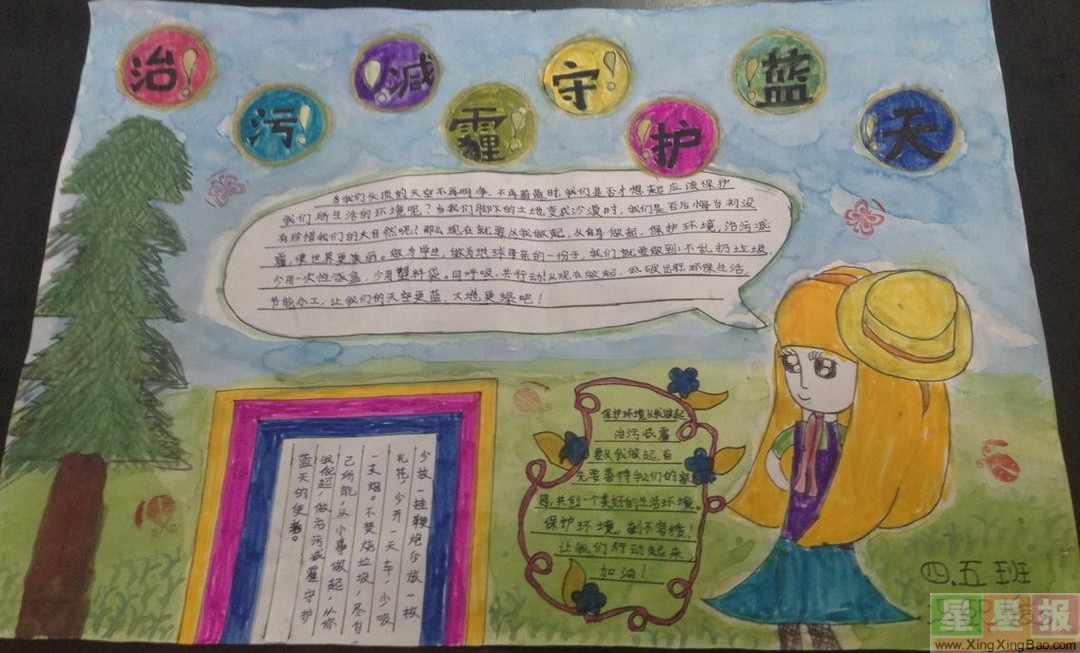 治污减霾守护蓝天
当我们头顶的天空不再明净,不再蔚蓝时,我们是否才想起应该保护
我们所生活的环境呢?当我们脚下的土地变成沙漠时,我们是否后悔当初没
有珍惜我们的大自然呢?那么现在就要从我做起,从自身做起,保护环境,治污减
霾,使世界更美丽。做为学生,做为地球母亲的一份子,我们就要做到:不乱扔垃圾,
少用一次性饭盒,少用塑料袋。同呼吸,共行动!从现在做起,低碳出行,环保生活,
节能办工,让我们的天空更蓝,大地更绿吧!
少放一挂鞭炮少放一枚
礼花,少开一天车,少吸
一支烟。不焚烧垃圾,尽自
己所能,从小事做起,从你
我做起,做治污减霾守护
蓝天的使者。
保护环境从我做起
治污减霾
要从我做起,首
先要善待我们的家
园,共创一个美好的生活环境。
保护环境,刻不容缓!
让我们行动起来
加油!
四.五班
星星报
www.XingXingBao.com